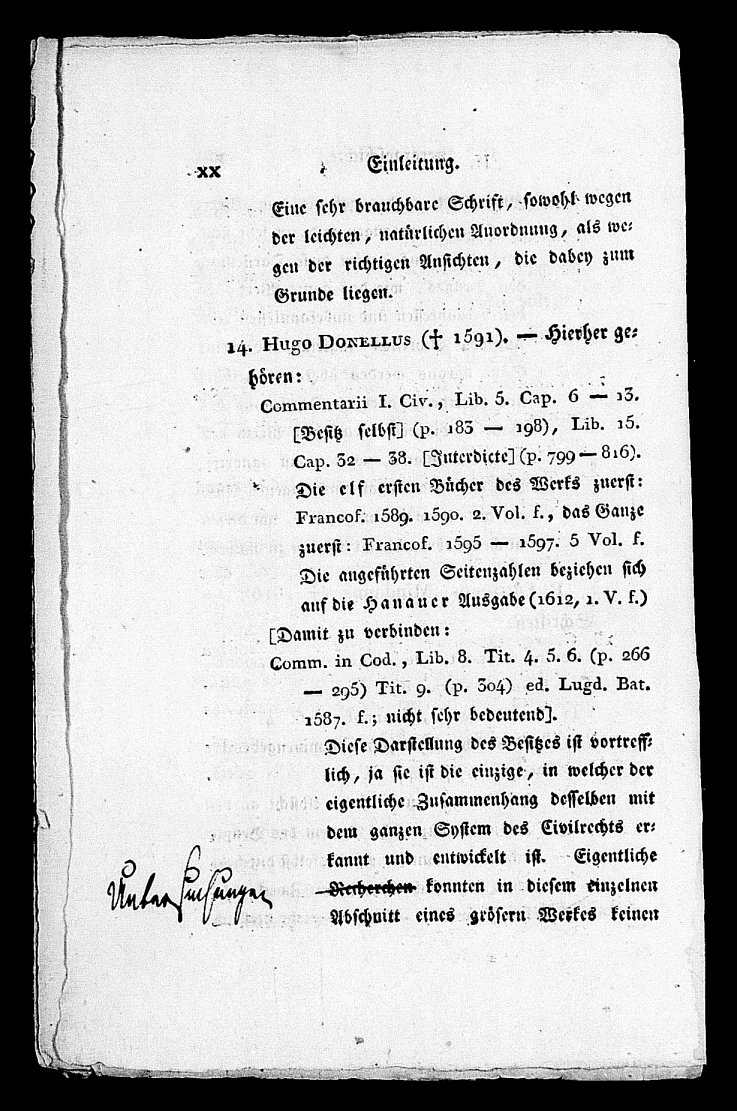 xx Einleitung.
Eine sehr brauchbare Schrift, sowohl wegen
der leichten, natürlichen Anordnung, als we-
gen der richtigen Ansichten, die dabey zum
Grunde liegen.
14. Hugo DONELLUS († 1591). — Hierher ge-
hören:
Commentarii I. Civ., Lib. 5. Cap. 6 — 13.
[Besitz selbst] (p. 183 — 198), Lib. 15.
Cap. 32 — 38. [Interdicte] (p. 799 — 816).
Die elf ersten Bücher des Werks zuerst:
Francof. 1589. 1590. 2. Vol. f., das Ganze
zuerst: Francof. 1595 — 1597. 5 Vol. f.
Die angeführten Seitenzahlen beziehen sich
auf die Hanauer Ausgabe (1612, 1. V. f.)
[Damit zu verbinden:
Comm. in Cod., Lib. 8. Tit. 4. 5. 6. (p. 266
— 295) Tit. 9. (p. 304) ed. Lugd. Bat.
1587. f.; nicht sehr bedeutend].
Diese Darstellung des Besitzes ist vortreff-
lich, ja sie ist die einzige, in welcher der
eigentliche Zusammenhang desselben mit
dem ganzen System des Civilrechts er-
kannt und entwickelt ist. Eigentliche
Untersuchungen
Recherchen konnten in diesem einzelnen
Abschnitt eines grösern Werkes keinen